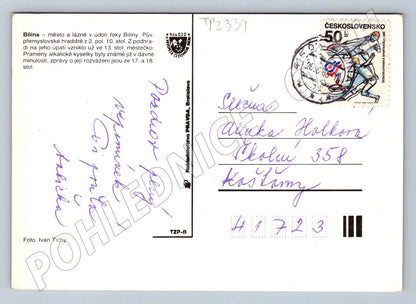 Bílina – město a lázně v údolí řeky Bíliny. Pův.
přemyslovské hradiště z 2. pol. 10. stol. Z podhradí
na jeho úpatí vzniklo už ve 13. stol. městečko.
Prameny alkalické kyselky byly známé již v dávné
minulosti, zprávy o její rozvážení jsou ze 17. a 18.
stol.
TP2339
ČESKOSLOVENSKO
50
Nakladatelstvo PRAVDA, Bratislava
Pozdrav
vzpomínek
Ti posílá
Slečna
Holkova
Školní 358
Košťany
41723
Foto Ivan Tichý
TZP-B
POHLEDNICE